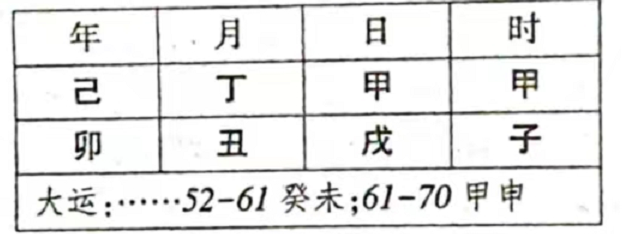 年 月 日 时
己 丁 甲 甲
卯 丑 戌 子
大运:……52-61 癸未;61-70 甲申